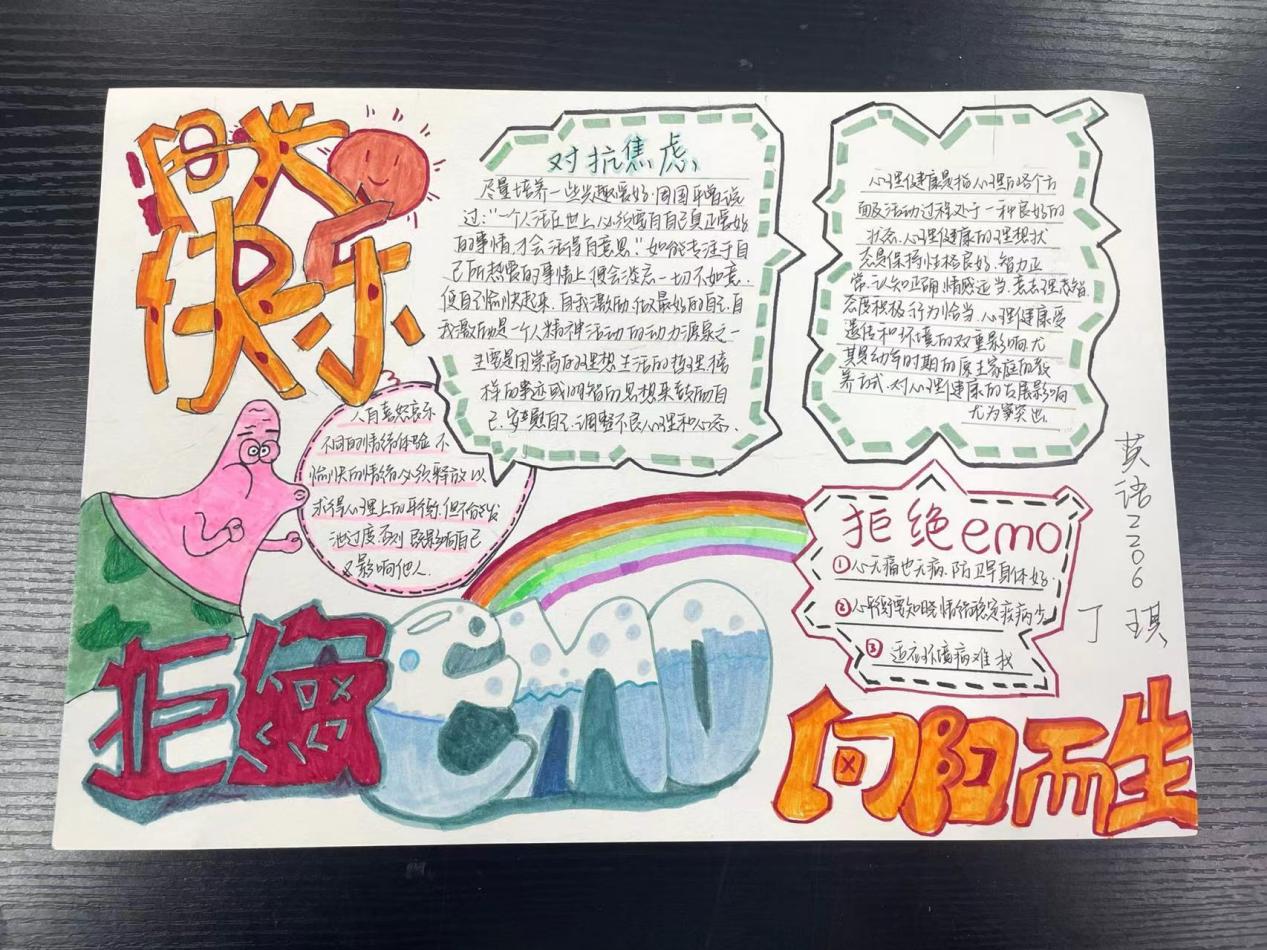 阳光
快乐
对抗焦虑
尽量培养一些兴趣爱好.周国平曾说
过:“一个人活在世上,必须要有自己真正爱好
的事情,才会活得有意思."如能专注于自
己所热爱的事情上,便会淡忘一切不如意.
使自己愉快起来.自我激励,做最好的自己.自
我激励是一个人精神活动的动力源泉之一
主要是用崇高的理想.生活的哲理.榜
样的事迹或明智的思想来鼓励自
己.安慰自己.调整不良心理和心态.
心理健康是指心理的各个方
面及活动过程处于一种良好的
状态.心理健康的理想状
态是保持性格良好.智力正
常.认知正确,情感适当.意志
态度积极.行为恰当.心理健康受
遗传和环境的双重影响,尤
其是幼年时期的原生家庭的教
养方式,对心理健康的发展影响
尤为突出.
人有喜怒哀乐
不同的情绪体验.不
愉快的情绪必须释放,以
求得心理上的平衡.但不能发
泄过度.否则.既影响自己
又影响他人.
拒绝emo
①心无痛也无病.防卫早身体好.
②心平衡要知晓情绪稳定疾病少.
③适应环境病难找
英语2206
丁琪
拒绝emo
向阳而生